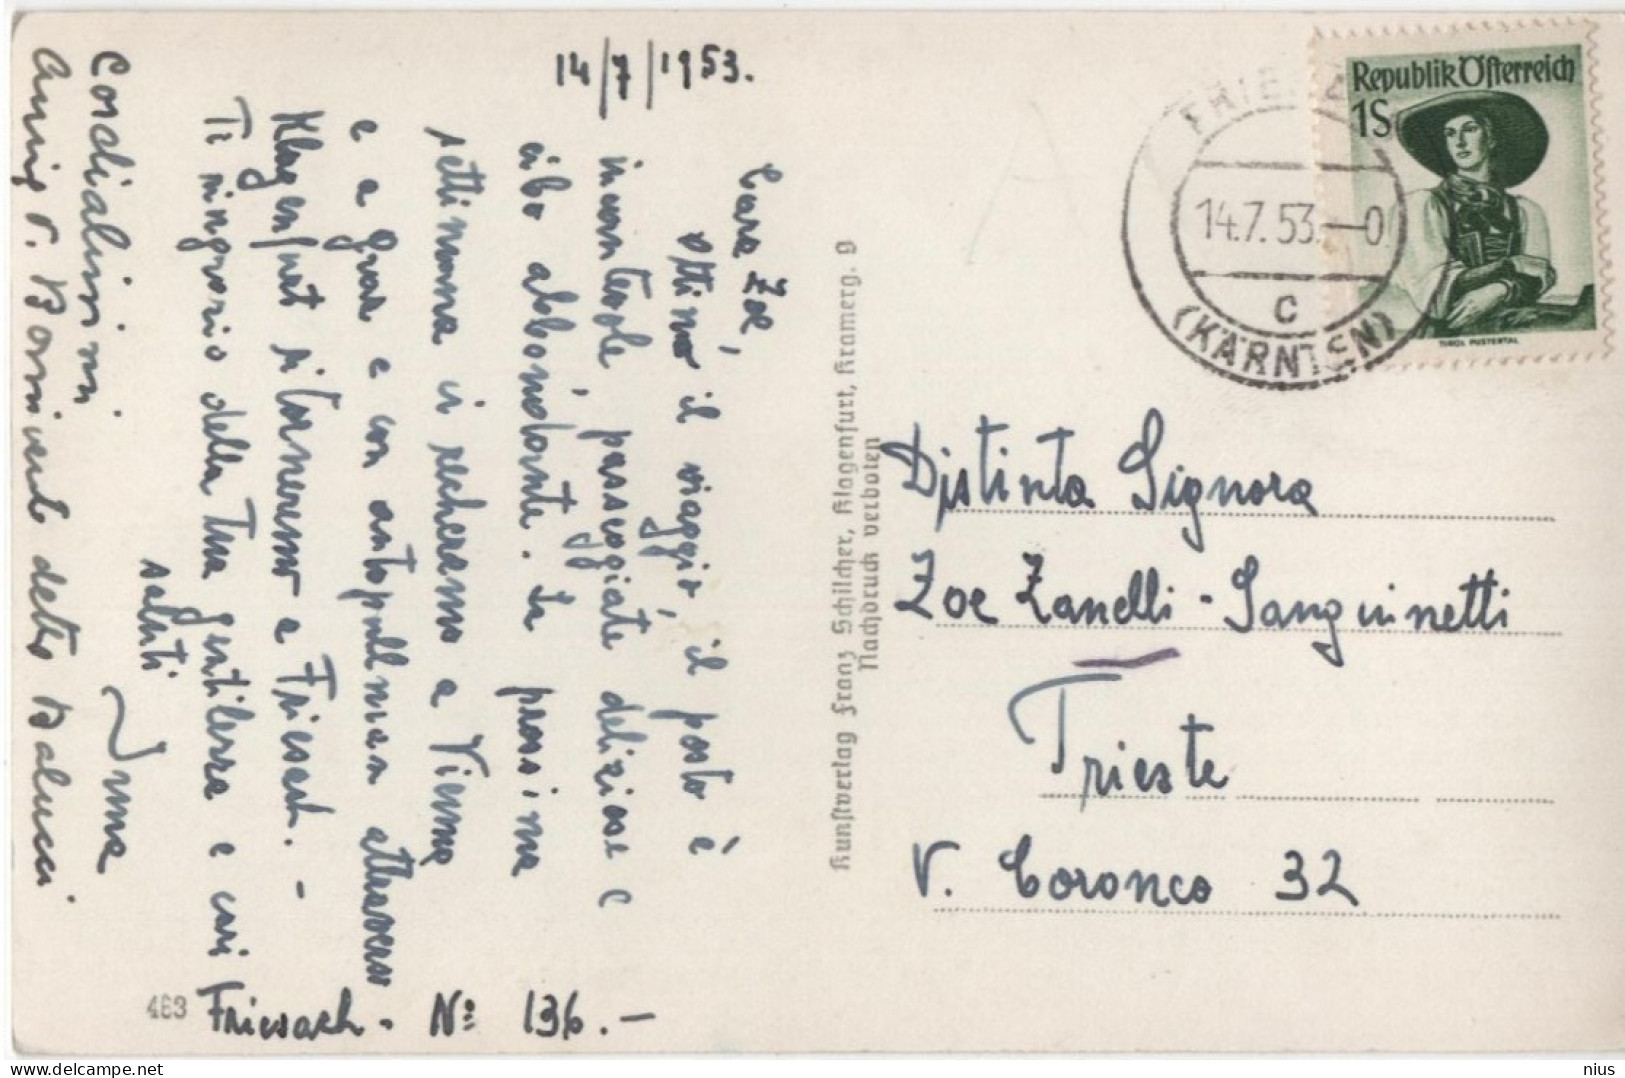 14/7/1953.
Cara Zoe,
Ottimo il viaggio, il posto è
incantevole, passeggiate deliziose e
cibo abbondante. La prossima
settimana ci recheremo a Vienna
e a Graz e con autopullman attraverso
Klagenfurt ritorneremo a Friesach. -
Ti ringrazio della Tua gentilezza e cari
saluti Irma
Cordialissimi
detto Balucci
Friesach - No 136.-
463
Kunstverlag Franz Schilcher, Klagenfurt, Kramerg. 9
Nachdruck verboten
Republik Österreich
1S
TIROL PUSTERTAL
14.7.53.--0
C
(KÄRNTEN)
Distinta Signora
Zoe Zanelli-Sanguinetti
Trieste
V. Coroneo 32
delcampe.net
nius